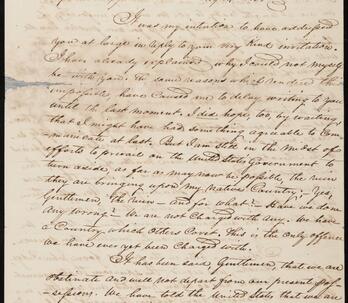 It was my intention to have addressed
you at large in reply to your very kind invitation.
I have already explained why I could not myself
be with you. The same reasons which rendered this
impossible have caused me to delay writing to you
until the last moment. I did hope, too, by waiting,
that I might have had something agreeable to com
-municate at last. But I am still in the midst of
efforts to prevail on the United States government to
turn aside, as far as may now be possible, the ruin
they are bringing upon my native Country; – Yes,
Gentlemen, the ruin – and for what? – Have we done
any wrong? We are not charged with any. We have
a Country which others covet. This is the only offence
we have ever yet been charged with.
It has been said, Gentlemen, that we are
obstinate and will not depart from our present pos-
-sessions. We have told the United States that we are